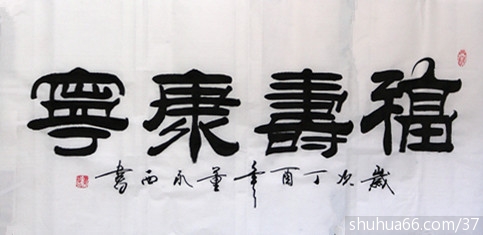 福壽康寧
歲次丁酉年董永西書
shuhua66.com/37